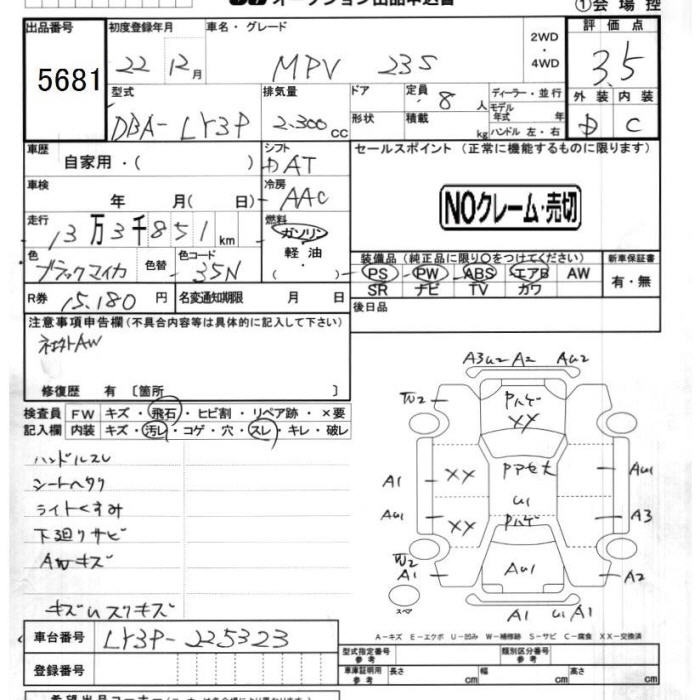 オークション出品申込書
①会場控
出品番号
5681
初度登録年月
22年12月
車名・グレード
MPV 23S
2WD
・
4WD
評価点
3.5
型式
DBA-LY3P
排気量
2.300cc
ドア
形状
定員 8人
積載 kg
ディーラー・並行
モデル年式 年
ハンドル 左・右
外装 内装
D C
車歴
自家用・( )
シフト
DAT
セールスポイント (正常に機能するものに限ります)
車検
年 月( 日)
冷房
AAC
NOクレーム・売切
走行
13万3千851km
燃料
ガソリン
軽油
・
( )
色
ブラックマイカ
色替
色コード
35N
装備品 (純正品に限り○をつけてください)
PS PW ABS エアB AW
SR ナビ TV カワ
新車保証書
有・無
R券 15.180円
名変通知期限 月 日
後日品
注意事項申告欄 (不具合内容等は具体的に記入して下さい)
社外AW
修復歴 有 〔箇所 〕
検査員
記入欄
FW キズ・飛石・ヒビ割・リペア跡・×要
内装 キズ・汚レ・コゲ・穴・スレ・キレ・破レ
ハンドルスレ
シートヘタリ
ライトくすみ
下廻りサビ
AWキズ
キズUスリキズ
A3U2 A2 AU2
Pハゲ
XX
A1 XX AU1
U1
AU1 XX Pハゲ A3
A1 AU1 A2
スペア
A1 U1 A1
A−キズ E−エクボ U−凹み W−補修跡 S−サビ C−腐食 XX−交換済
車台番号
LY3P-225323
登録番号
型式指定番号
参考
類別区分番号
参考
車庫証明用
参考
長さ cm
幅 cm
高さ cm